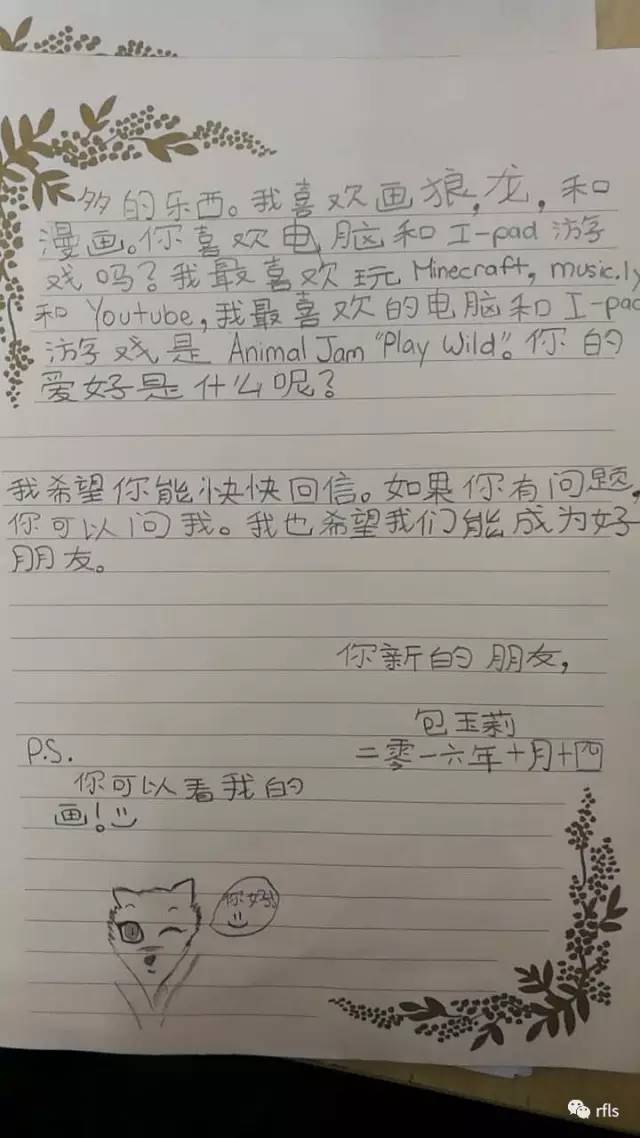 多的乐西。我喜欢画狼,龙,和
漫画。你喜欢电脑和I-pad 游
戏吗?我最喜欢玩Minecraft, music.ly
和 Youtube,我最喜欢的电脑和I-pad
游戏是 Animal Jam "Play Wild"。你的
爱好是什么呢?
我希望你能快快回信。如果你有问题,
你可以问我。我也希望我们能成为好
朋友。
你新的朋友,
包玉莉
二零一六年十月十四
P.S.
你可以看我的
画!
你好!
rfls